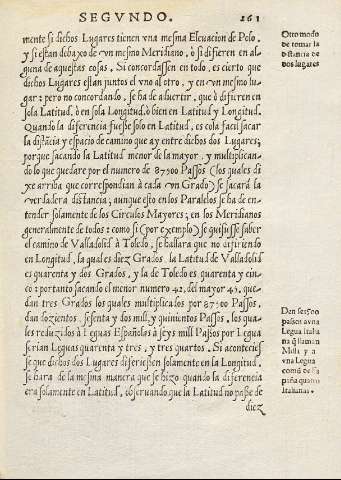 SEGVNDO. 261
mente si dichos Lugares tienen vna mesma Eleuacion de Polo,
y si estan debaxo de vn mesmo Meridiano, ò si difieren en al-
guna de aquestas cosas. Si concordassen en todo, es cierto que
dichos Lugares estan juntos el vno al otro, y en vn mesmo lu-
gar: pero no concordando, se ha de aduertir, que ò difieren en
sola Latitud, ò en sola Longitud, ò bien en Latitud y Longitud.
Quando la diferencia fuesse solo en Latitud, es cosa facil sacar
la distācia y espacio de camino que ay entre dichos dos Lugares;
porque sacando la Latitud menor de la mayor, y multiplican-
do lo que quedare por el numero de 87500 Passos (los quales di
xe arriba que correspondian à cada vn Grado) se sacarà la
verdadera distancia, aunque esto en los Paralelos se ha de en-
tender solamente de los Circulos Mayores; en los Meridianos
generalmente de todos: como si (por exemplo) se quisiesse saber
el camino de Valladolid à Toledo, se hallara que no difiriendo
en Longitud, la qual es diez Grados, la Latitud de Valladolid
es quarenta y dos Grados, y la de Toledo es quarenta y cin-
co: portanto sacando el menor numero 42. del mayor 45. que-
dan tres Grados los quales multiplicados por 87500 Passos,
dan dozientos, sesenta y dos mill, y quinientos Passos, los qua-
les reduzidos à Leguas Españolas à seys mill Passos por Legua
serian Leguas quarenta y tres, y tres quartos. Si aconteciesse
que dichos dos Lugares difiriessen solamente en la Longitud,
se hara de la mesma manera que se hizo quando la diferencia
era solamente en Latitud, obseruando que la Latitud no passe de
diez
Otro modo
de tomar la
distancia de
dos lugares
Den
passos avna
Legua italia
na q̃ llaman
Mill: y a
vna Legua
comũ de Es
paña quatro
Italianas.